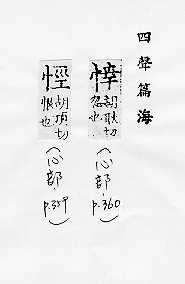 四聲篇海
悻
胡耿切
也
(心部.p.360)
胡頂切
恨也
(心部.p.359)